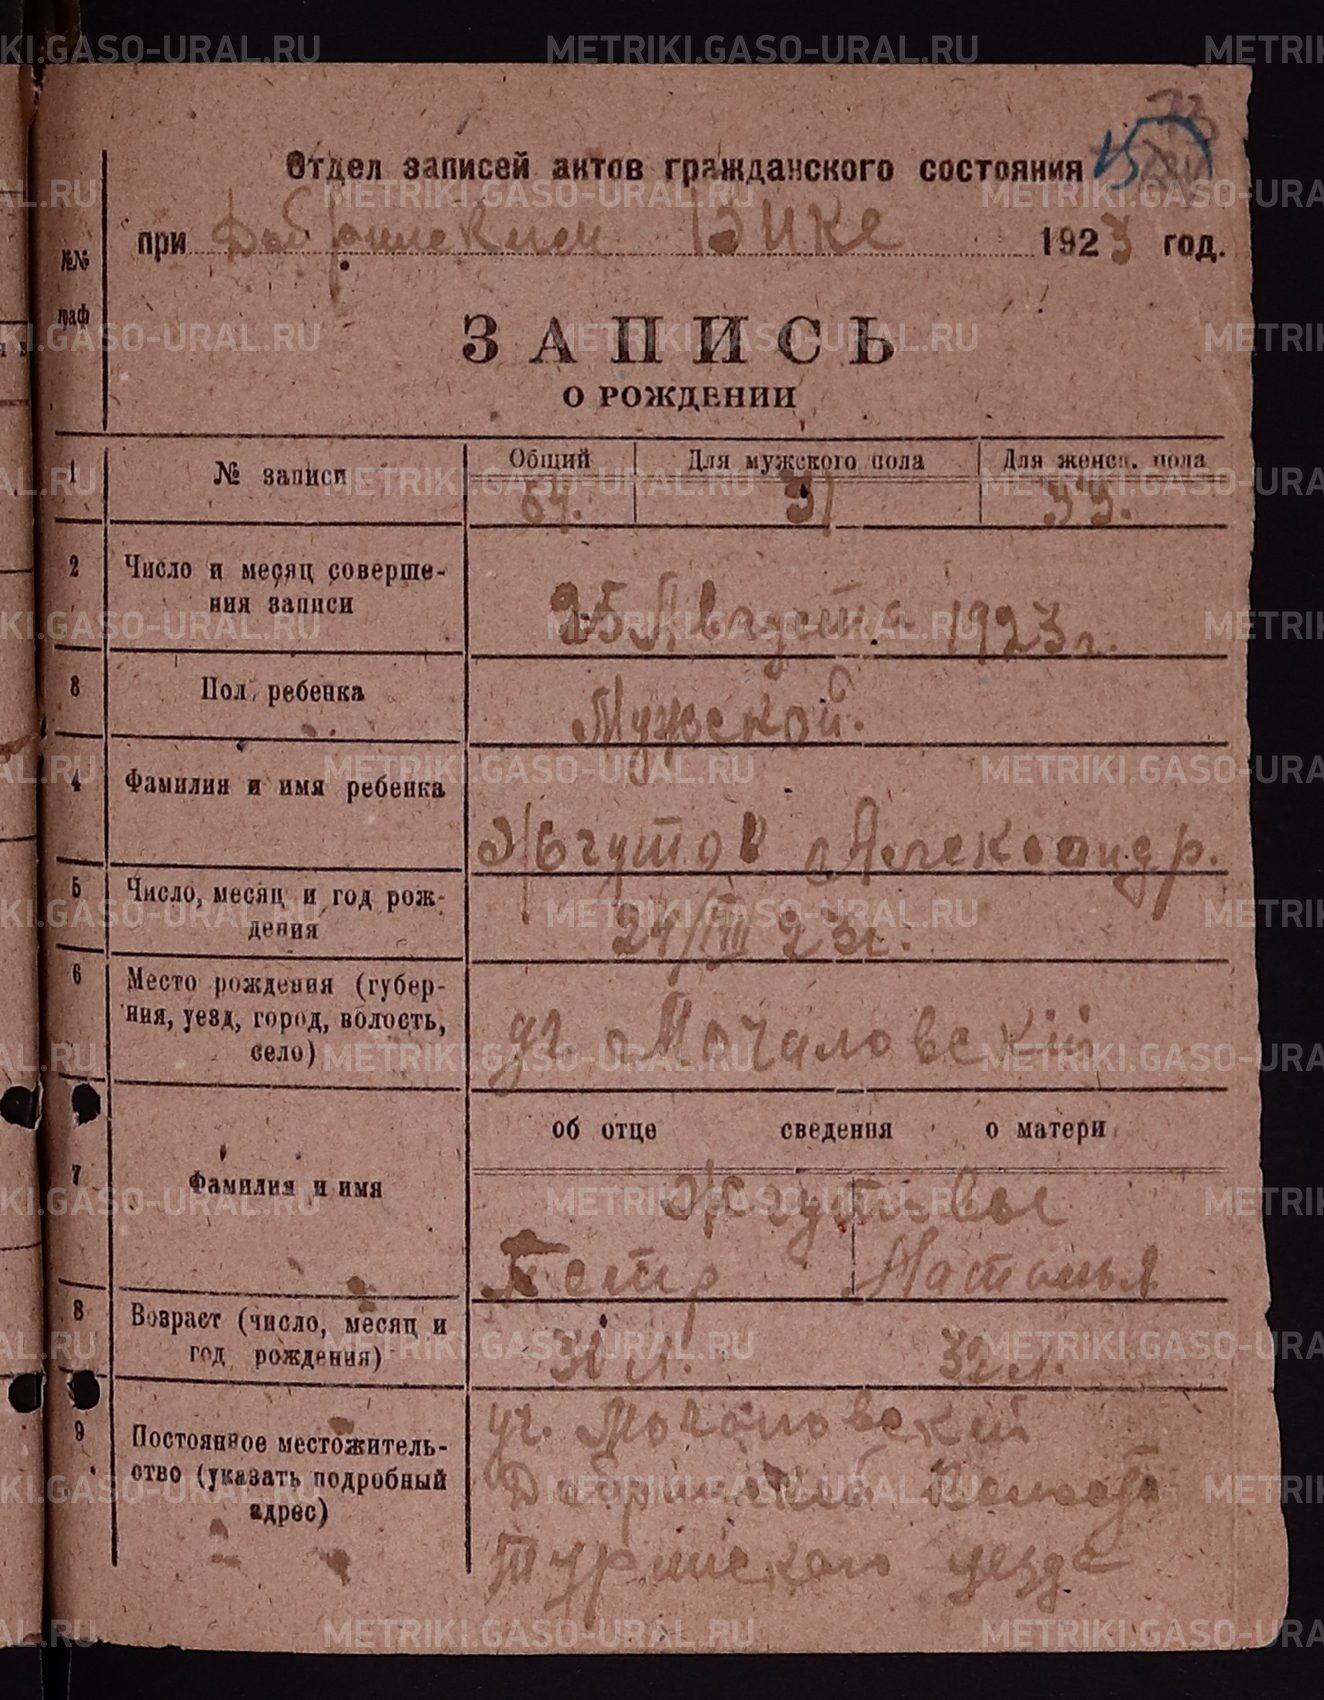 Отдел записей актов гражданского состояния
при Добринском ВИКе 1923 год.
№№ граф
ЗАПИСЬ
О РОЖДЕНИИ
1 № записи Общий Для мужского пола Для женск. пола
64. 31 33.
2 Число и месяц соверше-
ния записи
25 Августа 1923 г.
3 Пол ребенка
Мужской.
4 Фамилия и имя ребенка
Жгутов Александр.
5 Число, месяц и год рож-
дения
24/VIII 23 г.
6 Место рождения (губер-
ния, уезд, город, волость,
село)
уч. Мочаловский
об отце сведения о матери
7 Фамилия и имя
Жгутовы
Петр Наталья
8 Возраст (число, месяц и
год рождения)
31 л. 32 л.
9 Постоянное местожитель-
ство (указать подробный
адрес)
уч. Мочаловский
Добринской
Туринского уезда
METRIKI.GASO-URAL.RU